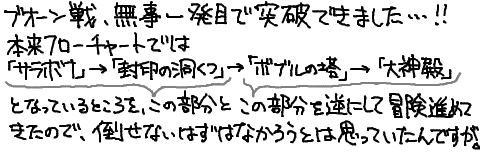 ブオーン戦、無事一発目で突破できました…!!
本来フローチャートでは
「サラボナ」→「封印の洞くつ」→「ボブルの塔」→「大神殿」
となっているところを、この部分と この部分を逆にして冒険進めて
きたので、倒せないはずはなかろうとは思っていたんですが。